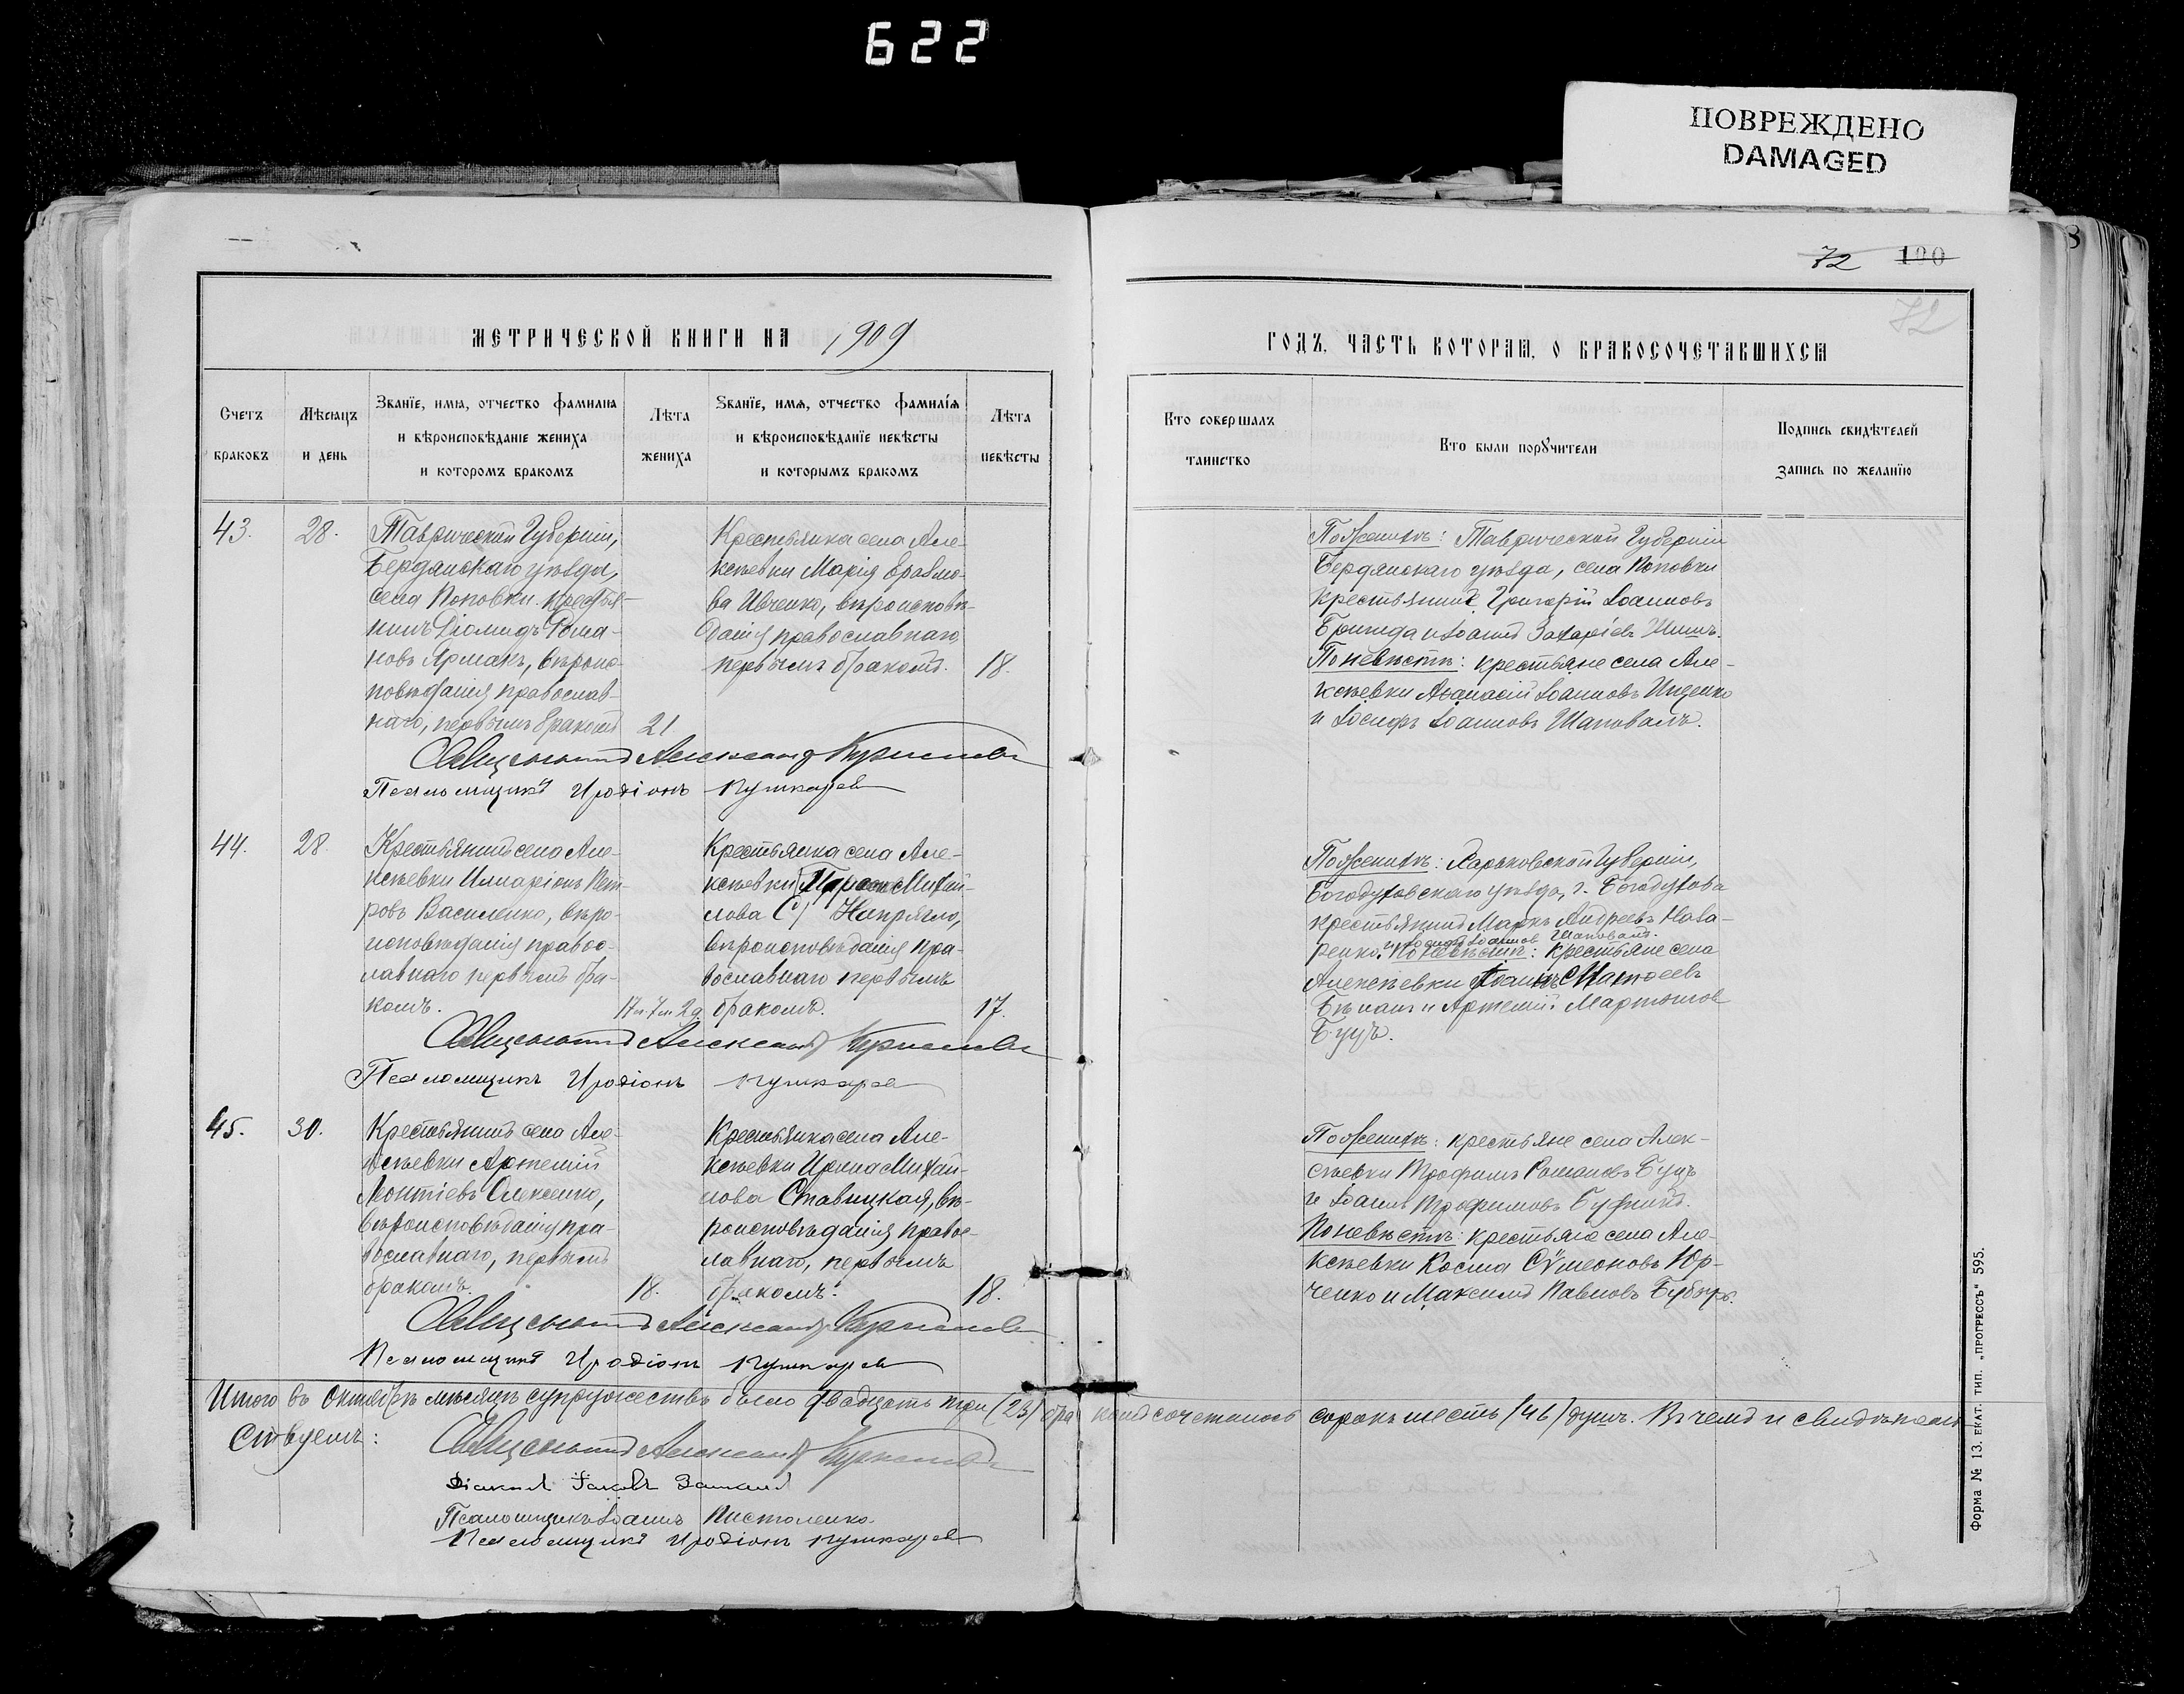 622
ПОВРЕЖДЕНО
DAMAGED
72 120
72
МЕТРИЧЕСКОЙ КНИГИ НА 1909
ГОДЪ, ЧАСТЬ ВТОРАЯ, О БРАКОСОЧЕТАВШИХСЯ
Счетъ браковъ
Мѣсяцъ и день
Званіе, имя, отчество фамилія
и вѣроисповѣданіе жениха
и которомъ бракомъ
Лѣта жениха
Званіе, имя, отчество фамилія
и вѣроисповѣданіе невѣсты
и которымъ бракомъ
Лѣта невѣсты
Кто совершалъ
таинство
Кто были поручители
Подпись свидѣтелей
запись по желанію
43.
28.
Таврической Губерніи,
Бердянскаго уѣзда,
села Поповки крестья-
нинъ Діомидъ Рома-
новъ Ярмакъ, вѣроис-
повѣданія православ-
наго, первымъ бракомъ
21
Крестьянка села Але-
ксѣевки Марія
ва Ивченко, вѣроисповѣ-
данія православнаго,
первымъ бракомъ.
18.
По женихѣ: Таврической Губерніи
Бердянскаго уѣзда, села Поповки
крестьяне Григорій Іоанновъ
и Іоаннъ Захаріевъ Шишъ.
По невѣстѣ: крестьяне села Але-
ксѣевки Аѳанасій Іоанновъ Ищенко
и Іосифъ Іоанновъ Шаповалъ.
Священникъ Александръ
Псаломщикъ Иродіонъ Пушкарев
44.
28.
Крестьянинъ села Але-
ксѣевки Иларіонъ Пет-
ровъ Василенко, вѣро-
исповѣданія правос-
лавнаго первымъ бра-
комъ.
17 л. 7 м. 2 д.
Крестьянка села Але-
ксѣевки Михай-
лова Напрягло,
вѣроисповѣданія пра-
вославнаго первымъ
бракомъ.
17.
По женихѣ: Харьковской Губерніи,
Богодуховскаго уѣзда, г. Богодухова
крестьянинъ Маркъ Андреевъ Наза-
и Іосифъ Іоанновъ Шаповалъ.
ренко. По невѣстѣ: крестьяне села
Алексѣевки Іоаннъ Матѳеевъ
Бѣланъ и Артемій Мартыновъ
Буцъ.
Священникъ Александръ
Псаломщикъ Иродіонъ Пушкарев
45.
30.
Крестьянинъ села Але-
ксѣевки Артемій
Леонтіевъ Олексенко,
вѣроисповѣданія пра-
вославнаго, первымъ
бракомъ.
18.
Крестьянка села Але-
ксѣевки Ирина Михай-
лова Ставицкая, вѣ-
роисповѣданія правос-
лавнаго, первымъ
бракомъ.
18.
По женихѣ: крестьяне села Алек-
сѣевки Трофимъ Романовъ Буцъ
и Іоаннъ Трофимовъ
По невѣстѣ: крестьяне села Але-
ксѣевки Косма Сѵмеоновъ Юр-
ченко и Максимъ Павловъ Бубырь.
Священникъ Александръ
Псаломщикъ Иродіонъ Пушкарев
Итого въ Октябрѣ мѣсяцѣ супружествъ было двадцать три (23) бракомъ сочеталось сорокъ шесть (46) душъ. Въ чемъ и свидѣтель-
ствуемъ:
Священникъ Александръ
Діаконъ Іаковъ
Псаломщикъ Іоаннъ Писτоленко
Псаломщикъ Иродіонъ Пушкарев
Форма № 13. ЕКАТ. ТИП. „ПРОГРЕССЪ“ 595.